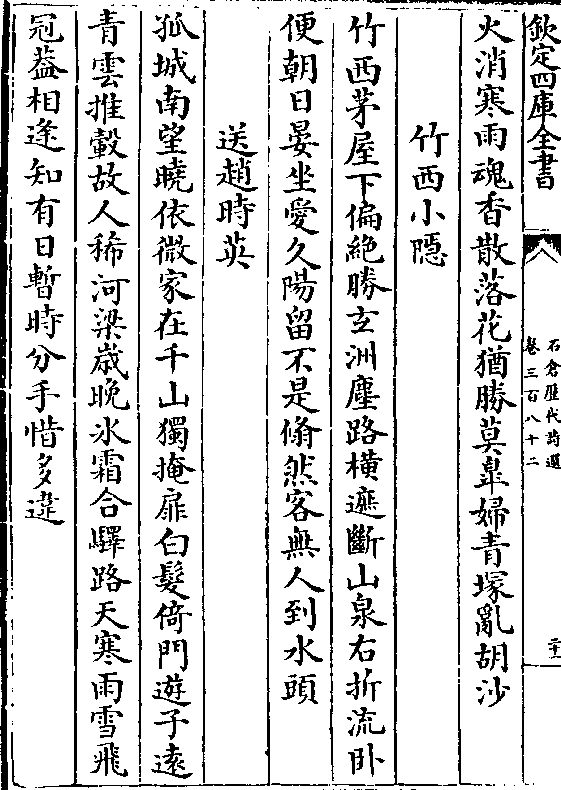 欽定四庫全書
石倉歷代詩選
卷三百八十二
二十一
火消寒雨魂香散落花猶勝莫皐婦青塚亂胡沙
竹西小隱
竹西茅屋下偏絶勝玄洲塵路橫遮斷山泉右折流卧
便朝日晏坐愛久陽留不是翛然客無人到水頭
送趙時英
孤城南望曉依微家在千山獨掩扉白髮倚門遊子遠
青雲推轂故人稀河梁歲晚冰霜合驛路天寒雨雪飛
冠蓋相逢知有日暫時分手惜多違